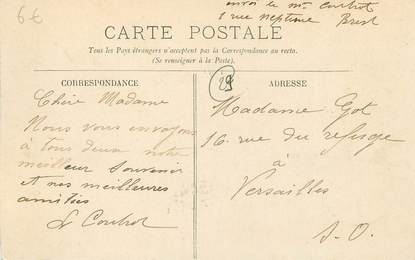 6€
envoi de Mr Coutrot
1 rue Neptune Brest
CARTE POSTALE
Tous les Pays étrangers n'acceptent pas la Correspondance au recto.
(Se renseigner à la Poste).
CORRESPONDANCE
ADRESSE
29
Chère Madame
Nous vous envoyons
à tous deux notre
meilleur souvenir
et nos meilleures
amitiés
Coutrot
Madame Got
16 rue du refuge
à
Versailles
S.O.